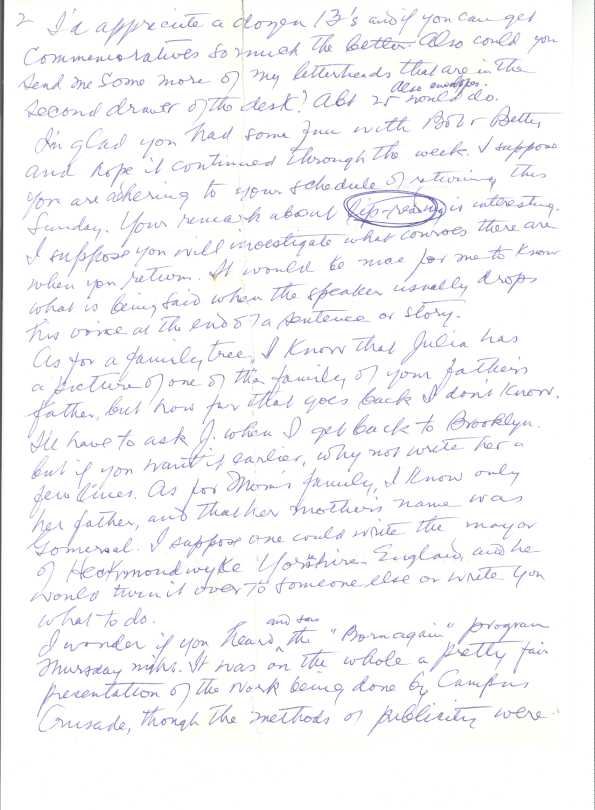 2 I'd appreciate a dozen 13's and if you can get
Commemoratives so much the better. Also could you
send me some more of my letterheads that are in the
also envelopes.
second drawer of the desk? Abt 25 would do.
I'm glad you had some fun with Bob & Betty
and hope it continued through the week. I suppose
you are adhering to your schedule of returning this
Sunday. Your remark about lip-reading is interesting.
I suppose you will investigate what courses there are
when you return. It would be nice for me to know
what is being said when the speaker usually drops
his voice at the end of a sentence or story.
As for a family tree, I know that Julia has
a picture of one of the family of your father's
father, but how far that goes back I don't know.
I'll have to ask J. when I get back to Brooklyn.
but if you want it earlier, why not write her a
few lines. As for Mom's family, I know only
her father, and that her mother's name was
Somersal. I suppose one could write the mayor
of Heckmondwyke Yorkshire England, and he
would turn it over to someone else or write you
what to do.
and saw
I wonder if you heard the "Born again" program
Thursday night. It was on the whole a pretty fair
presentation of the work being done by Campus
Crusade, though the methods of publicity were